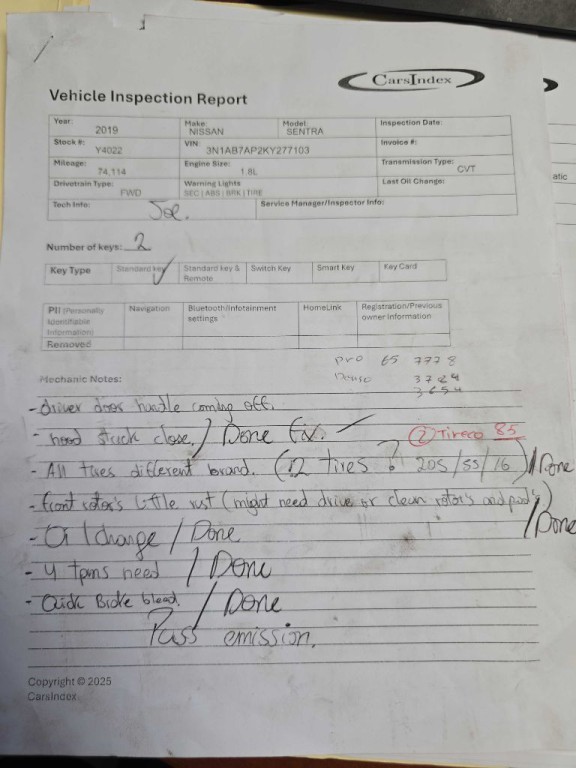 CarsIndex
Vehicle Inspection Report
Year: 2019 Make: NISSAN Model: SENTRA Inspection Date:
Stock #: Y4022 VIN: 3N1AB7AP2KY277103 Invoice #:
Mileage: 74,114 Engine Size: 1.8L Transmission Type: CVT
Drivetrain Type: FWD Warning Lights SEC | ABS | BRK | TIRE Last Oil Change:
Tech Info: Joe. Service Manager/Inspector Info:
atic
Number of keys: 2
Key Type Standard key ✓ Standard key & Remote Switch Key Smart Key Key Card
PII (Personally Identifiable Information) Navigation Bluetooth/Infotainment settings HomeLink Registration/Previous owner Information
Removed
pro 65 7778
3724
Mechanic Notes: 3654
- driver does handle coming off.
- hood stuck close. / Done fix.
② Tireco 85
- All tires different brand. (12 tires ? 205/55/16) / Done
- front rotor's little rust (might need drive or clean rotor's and pad's) / Done
- Oil change / Done
- 4 tpms need / Done
- Quick Brake bleed. / Done
Pass emission.
Copyright © 2025
CarsIndex